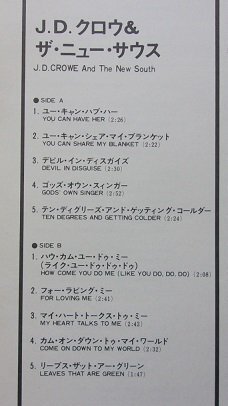 J.D.クロウ&
ザ・ニュー・サウス
J.D.CROWE And The New South
● SIDE A
1. ユー・キャン・ハブ・ハー
YOU CAN HAVE HER (2:26)
2. ユー・キャン・シェア・マイ・ブランケット
YOU CAN SHARE MY BLANKET (2:22)
3. デビル・イン・ディスガイズ
DEVIL IN DISGUISE (2:30)
4. ゴッズ・オウン・スィンガー
GODS' OWN SINGER (2:52)
5. テン・ディグリーズ・アンド・ゲッティング・コールダー
TEN DEGREES AND GETTING COLDER (2:24)
● SIDE B
1. ハウ・カム・ユー・ドゥ・ミー
(ライク・ユー・ドゥ・ドゥ・ドゥ)
HOW COME YOU DO ME (LIKE YOU DO, DO, DO) (2:08)
2. フォー・ラビング・ミー
FOR LOVING ME (2:41)
3. マイ・ハート・トークス・トゥ・ミー
MY HEART TALKS TO ME (2:42)
4. カム・オン・ダウン・トゥ・マイ・ワールド
COME ON DOWN TO MY WORLD (2:32)
5. リーブス・ザット・アー・グリーン
LEAVES THAT ARE GREEN (1:47)